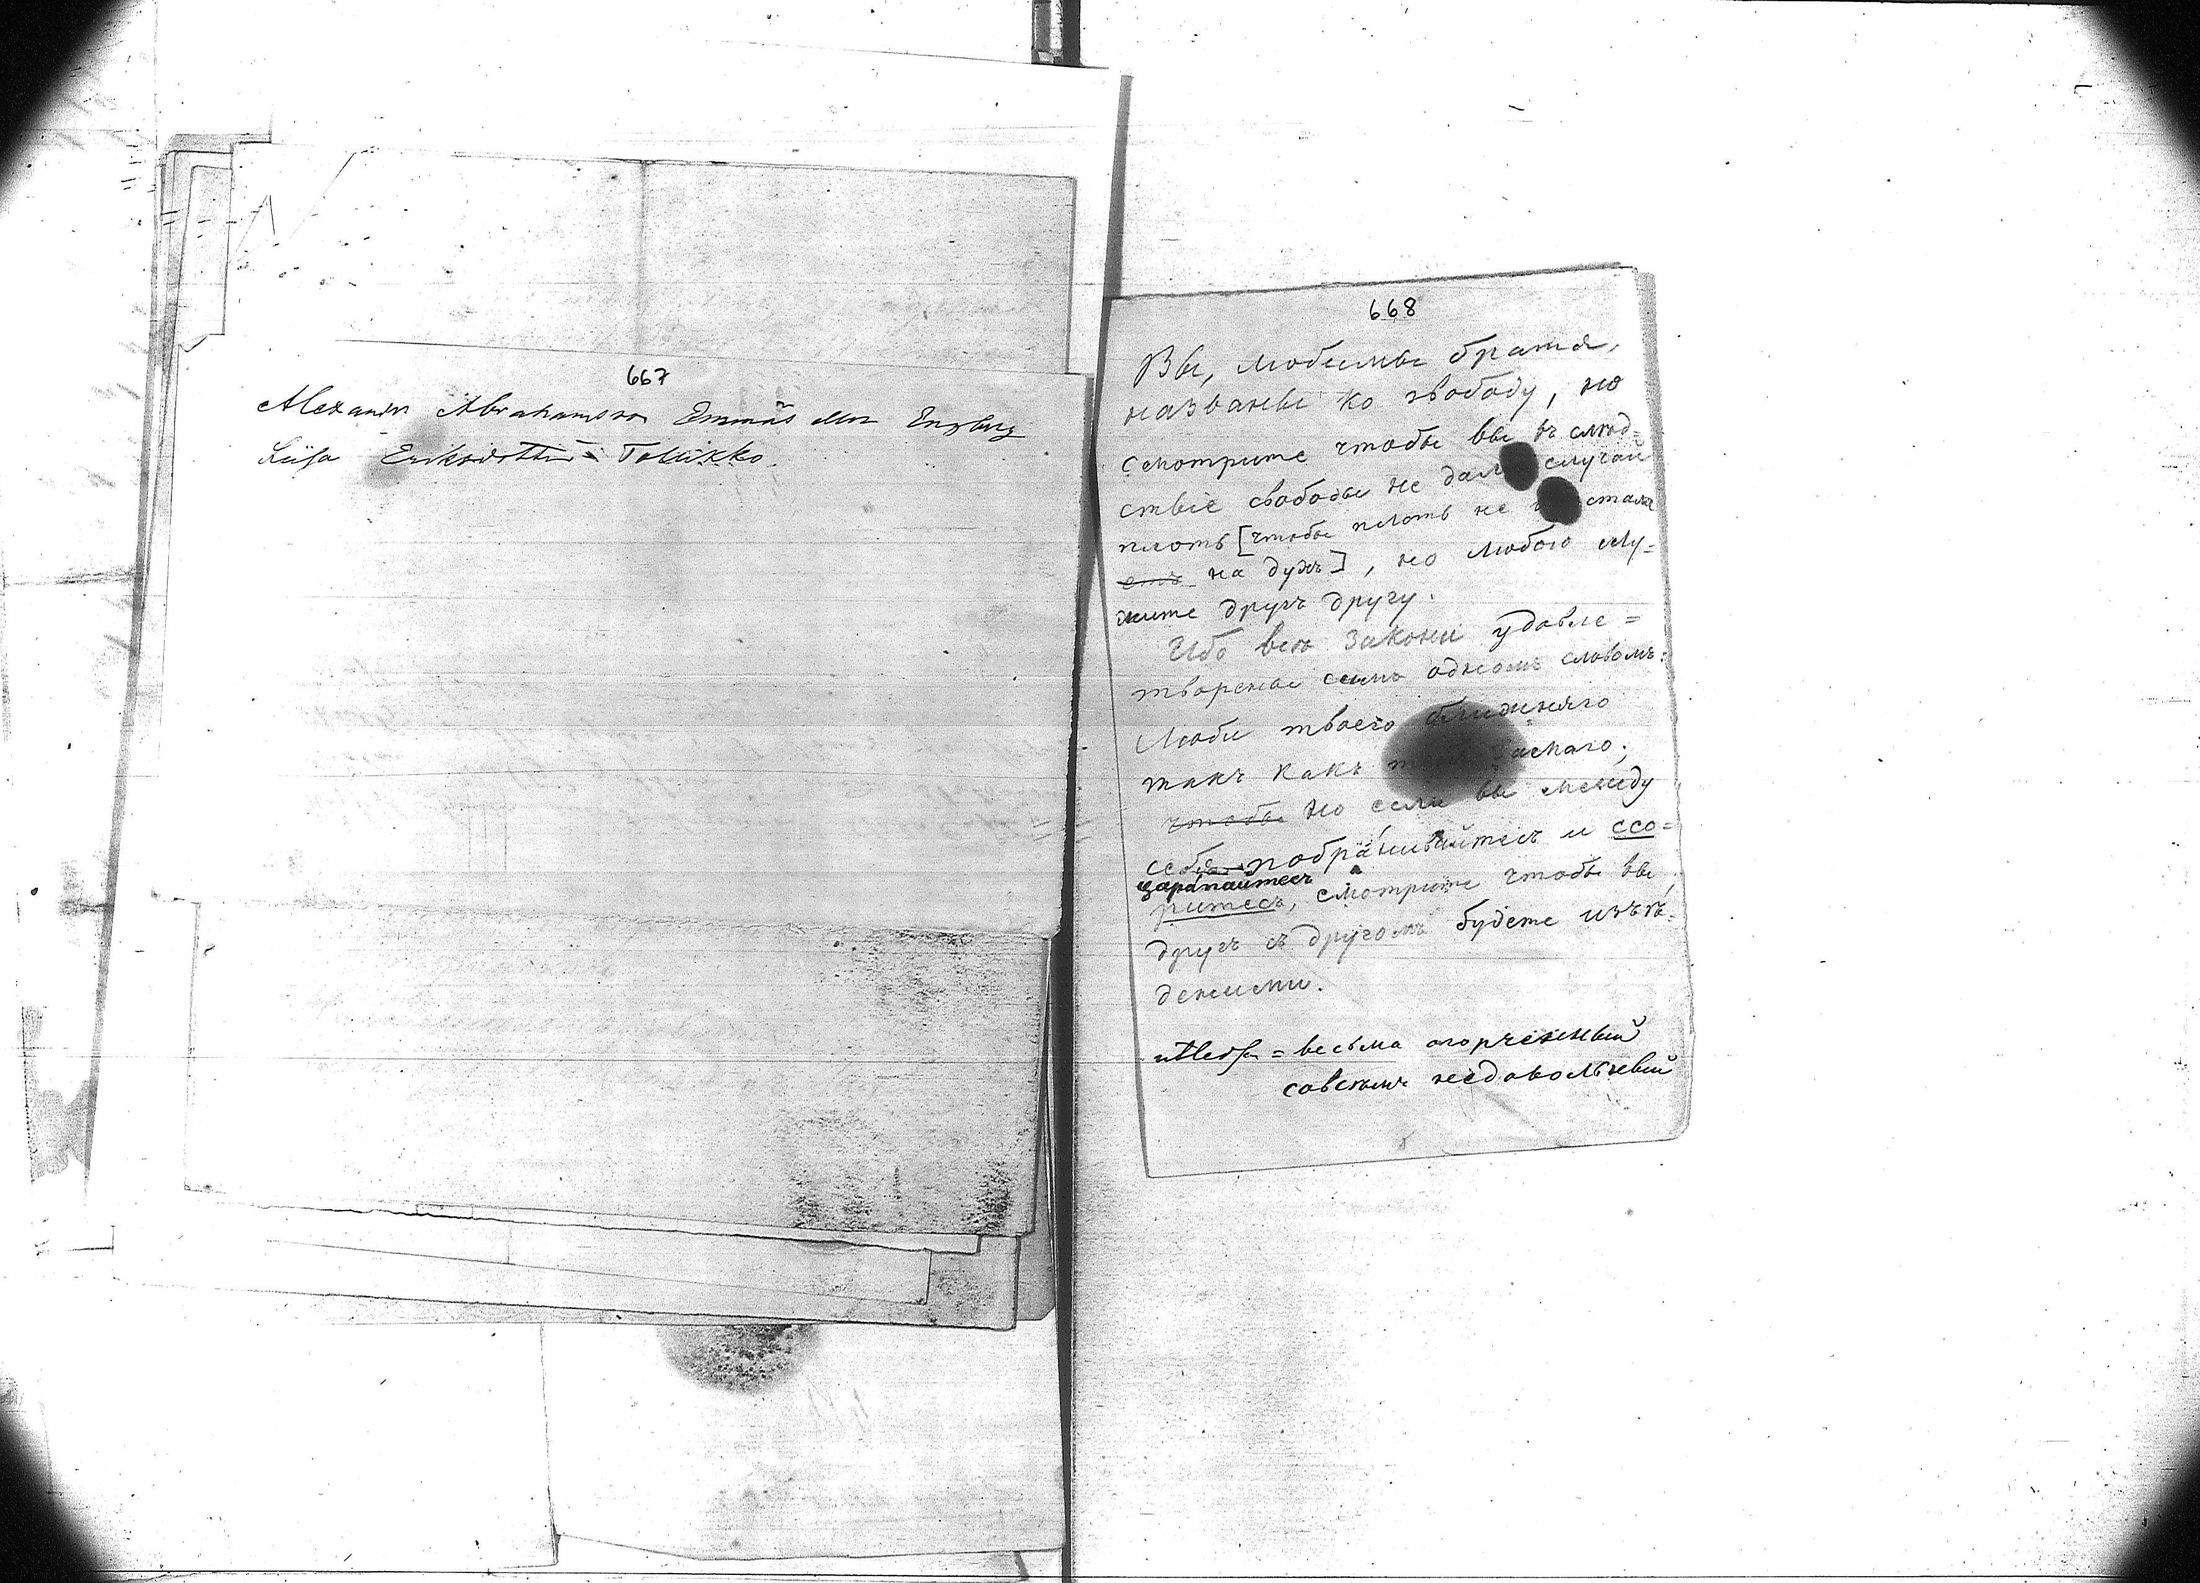 667
Alexander Abrahamsson Emmäs Mor Engberg
Liisa Eriksdotter Tollikko
668
Вы, любимые братья,
названы ко свободу, но
смотрите чтобы вы въ слюд=
ствіе свободы не дали случаи
плоть [чтобы плоть не стала
на духъ], но любою слу=
жите другъ другу.
Ибо весь законы удовле=
творены симъ одномъ словомъ:
Люби твоего ближняго
такъ какъ
чтобы Но если вы между
себя побра́нивайтесь и ссо=
цара́пайтесь
ритесь, смотрите чтобы вы
другъ съ другомъ будете изъѣ=
деними.
utledsn = весьма огорченный
совсемъ недовольный